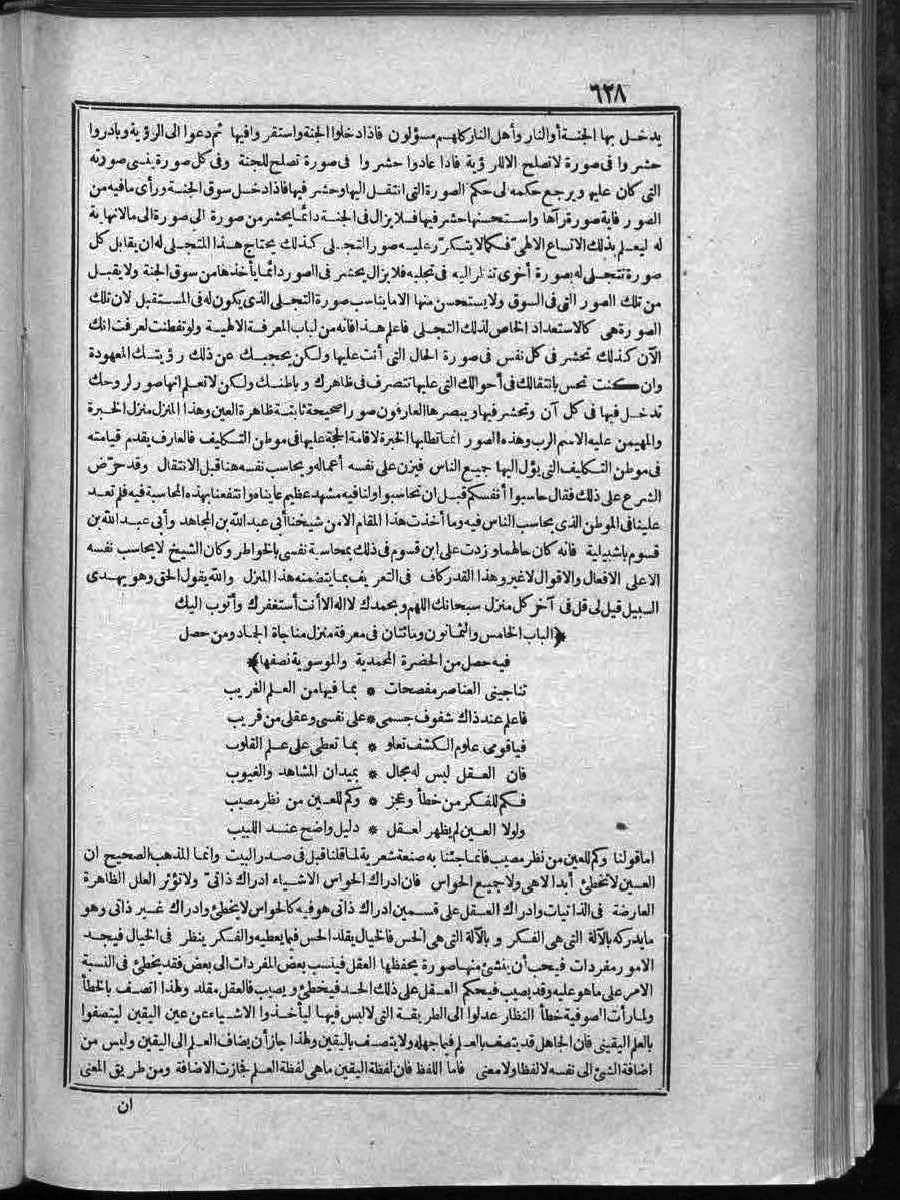 ٦٢٨
يدخل بها الجنة أو النار وأهل النار كلهم مسؤلون فاذا دخلوا الجنة واستقروا فيها ثم دعوا الى الرؤية وبادروا
حشروا فى صورة لا تصلح الا للرؤية فاذا عادوا حشروا فى صورة تصلح للجنة وفى كل صورة ينسى صورته
التى كان عليها ويرجع حكمه الى حكم الصورة التى انتقل اليها وحشر فيها فاذا دخل سوق الجنة ورأى ما فيه من
الصور فاية صورة رآها واستحسنها حشر فيها فلا يزال فى الجنة دائما يحشر من صورة الى صورة الى ما لا نهاية
له ليعلم بذلك الاتساع الالهى فكما لا يتكرر عليه صور التجلى كذلك يحتاج هذا المتجلى له ان يقابل كل
صورة تتجلى له بصورة أخرى تنظر اليه فى تجليه فلا يزال يحشر فى الصور دائما يأخذها من سوق الجنة ولا يقبل
من تلك الصور التى فى السوق ولا يستحسن منها الا ما يناسب صورة التجلى الذى يكون له فى المستقبل لان تلك
الصورة هى كالاستعداد الخاص لذلك التجلى فاعلم هذا فانه من لباب المعرفة الالهية ولو تفطنت لعرفت انك
الآن كذلك تحشر فى كل نفس فى صورة الحال التى أنت عليها ولكن يحجبك عن ذلك رؤيتك المعهودة
وان كنت تحس بانتقالك فى أحوالك التى عليها تتصرف فى ظاهرك وباطنك ولكن لا تعلم انها صور لروحك
تدخل فيها فى كل آن وتحشر فيها ويبصرها العارفون صورا صحيحة ثابتة ظاهرة العين وهذا المنزل منزل الخبرة
والمهيمن عليه الاسم الرب وهذه الصور انما تطلبها الخبرة لاقامة الحجة عليها فى موطن التكليف فالعارف يقدم قيامته
فى موطن التكليف التى يؤل اليها جميع الناس فيزن على نفسه أعماله ويحاسب نفسه هنا قبل الانتقال وقد حرّض
الشرع على ذلك فقال حاسبوا أنفسكم قبل ان تحاسبوا ولنا فيه مشهد عظيم عايناه وانتفعنا بهذه المحاسبة فيه فلم تعد
علينا فى الموطن الذى يحاسب الناس فيه وما أخذت هذا المقام الا من شيخنا أبى عبد الله بن المجاهد وأبى عبد الله بن
قسوم باشبيلية فانه كان حالهما وزدت على ابن قسوم فى ذلك بمحاسبة نفسى بالخواطر وكان الشيخ لا يحاسب نفسه
الا على الافعال والاقوال لا غير وهذا القدر كاف فى التعريف بما يتضمنه هذا المنزل والله يقول الحق وهو يهدى
السبيل قيل لى قل فى آخر كل منزل سبحانك اللهم وبحمدك لا اله الا أنت أستغفرك وأتوب اليك
﴿الباب الخامس والثمانون ومائتان فى معرفة منزل مناجاة الجماد ومن حصل
فيه حصل من الحضرة المحمدية والموسوية نصفها﴾
تناجينى العناصر مفصحات * بما فيها من العلم الغريب
فاعلم عند ذاك شفوف جسمى * على نفسى وعقلى من قريب
فيا قومى علوم الكشف تعلو * بما تعطى على علم القلوب
فان العقل ليس له مجال * بميدان المشاهد والغيوب
فكم للفكر من خطأ وعجز * وكم للعين من نظر مصيب
ولولا العين لم يظهر لعقل * دليل واضح عند اللبيب
اما قولنا وكم للعين من نظر مصيب فانما جئنا به صنعة شعرية لما قلنا قبل فى صدر البيت وانما المذهب الصحيح ان
العين لا تخطئ أبدا لا هى ولا جميع الحواس فان ادراك الحواس الاشياء ادراك ذاتى ولا تؤثر العلل الظاهرة
العارضة فى الذاتيات وادراك العقل على قسمين ادراك ذاتى هو فيه كالحواس لا يخطئ وادراك غير ذاتى وهو
ما يدركه بالآلة التى هى الفكر وبالآلة التى هى الحس فالخيال يقلد الحس فيما يعطيه والفكر ينظر فى الخيال فيجد
الامور مفردات فيحب أن ينشئ منها صورة يحفظها العقل فينسب بعض المفردات الى بعض فقد يخطئ فى النسبة
الامر على ما هو عليه وقد يصيب فيحكم العقل على ذلك الحد فيخطئ ويصيب فالعقل مقلد ولهذا اتصف بالخطأ
ولما رأت الصوفية خطأ النظار عدلوا الى الطريقة التى لا لبس فيها ليأخذوا الاشياء عن عين اليقين ليتصفوا
بالعلم اليقينى فان الجاهل قد يتصف بالعلم فيما جهله ولا يتصف باليقين ولهذا جاز أن يضاف العلم الى اليقين وليس من
اضافة الشئ الى نفسه لا لفظا ولا معنى فاما اللفظ فان لفظة اليقين ما هى لفظة العلم فجازت الاضافة ومن طريق المعنى
ان